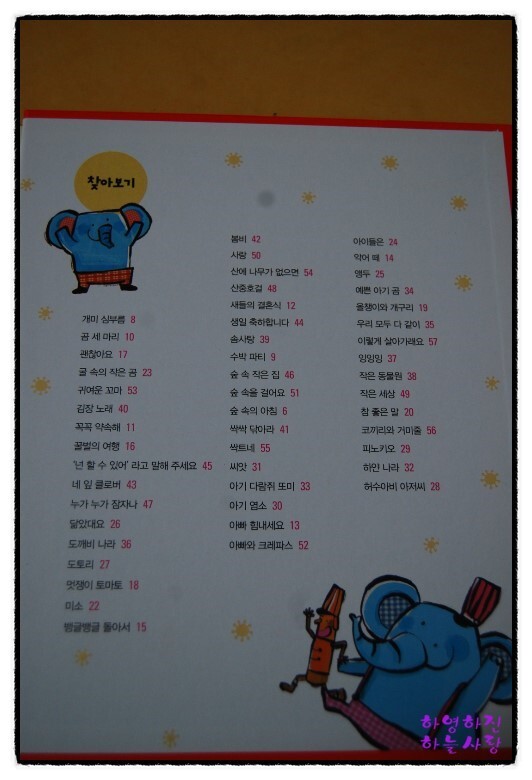 찾아보기
개미 심부름 8
곰 세 마리 10
괜찮아요 17
굴 속의 작은 곰 23
귀여운 꼬마 53
김장 노래 40
꼭꼭 약속해 11
꿀벌의 여행 16
'넌 할 수 있어' 라고 말해 주세요 45
네 잎 클로버 43
누가 누가 잠자나 47
닮았대요 26
도깨비 나라 36
도토리 27
멋쟁이 토마토 18
미소 22
뱅글뱅글 돌아서 15
봄비 42
사랑 50
산에 나무가 없으면 54
산중호걸 48
새들의 결혼식 12
생일 축하합니다 44
솜사탕 39
수박 파티 9
숲 속 작은 집 46
숲 속을 걸어요 51
숲 속의 아침 6
싹싹 닦아라 41
싹트네 55
씨앗 31
아기 다람쥐 또미 33
아기 염소 30
아빠 힘내세요 13
아빠와 크레파스 52
아이들은 24
악어 떼 14
앵두 25
예쁜 아기 곰 34
올챙이와 개구리 19
우리 모두 다 같이 35
이렇게 살아가래요 57
잉잉잉 37
작은 동물원 38
작은 세상 49
참 좋은 말 20
코끼리와 거미줄 56
피노키오 29
하얀 나라 32
허수아비 아저씨 28
하영하진
하늘사랑